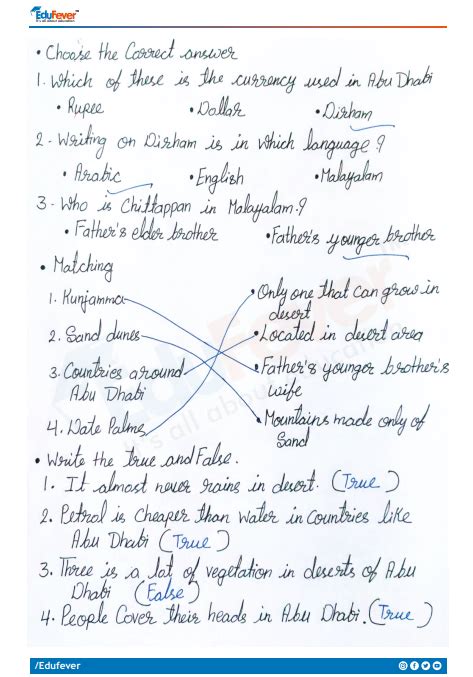 EduFever
It's all about education
• Choose the Correct answer
1. Which of these is the currency used in Abu Dhabi
• Rupee • Dollar • Dirham
2. Writing on Dirham is in which language?
• Arabic • English • Malayalam
3. Who is Chittappan in Malayalam?
• Father's elder brother • Father's younger brother
• Matching
1. Kunjamma • Only one that can grow in
desert
2. Sand dunes • Located in desert area
3. Countries around • Father's younger brother's
Abu Dhabi wife
4. Date Palms • Mountains made only of
Sand
• Write the true and False.
1. It almost never rains in desert. (True)
2. Petrol is Cheaper than Water in Countries like
Abu Dhabi (True)
3. Three is a lot of vegetation in deserts of Abu
Dhabi (False)
4. People Cover their heads in Abu Dhabi. (True)
/Edufever